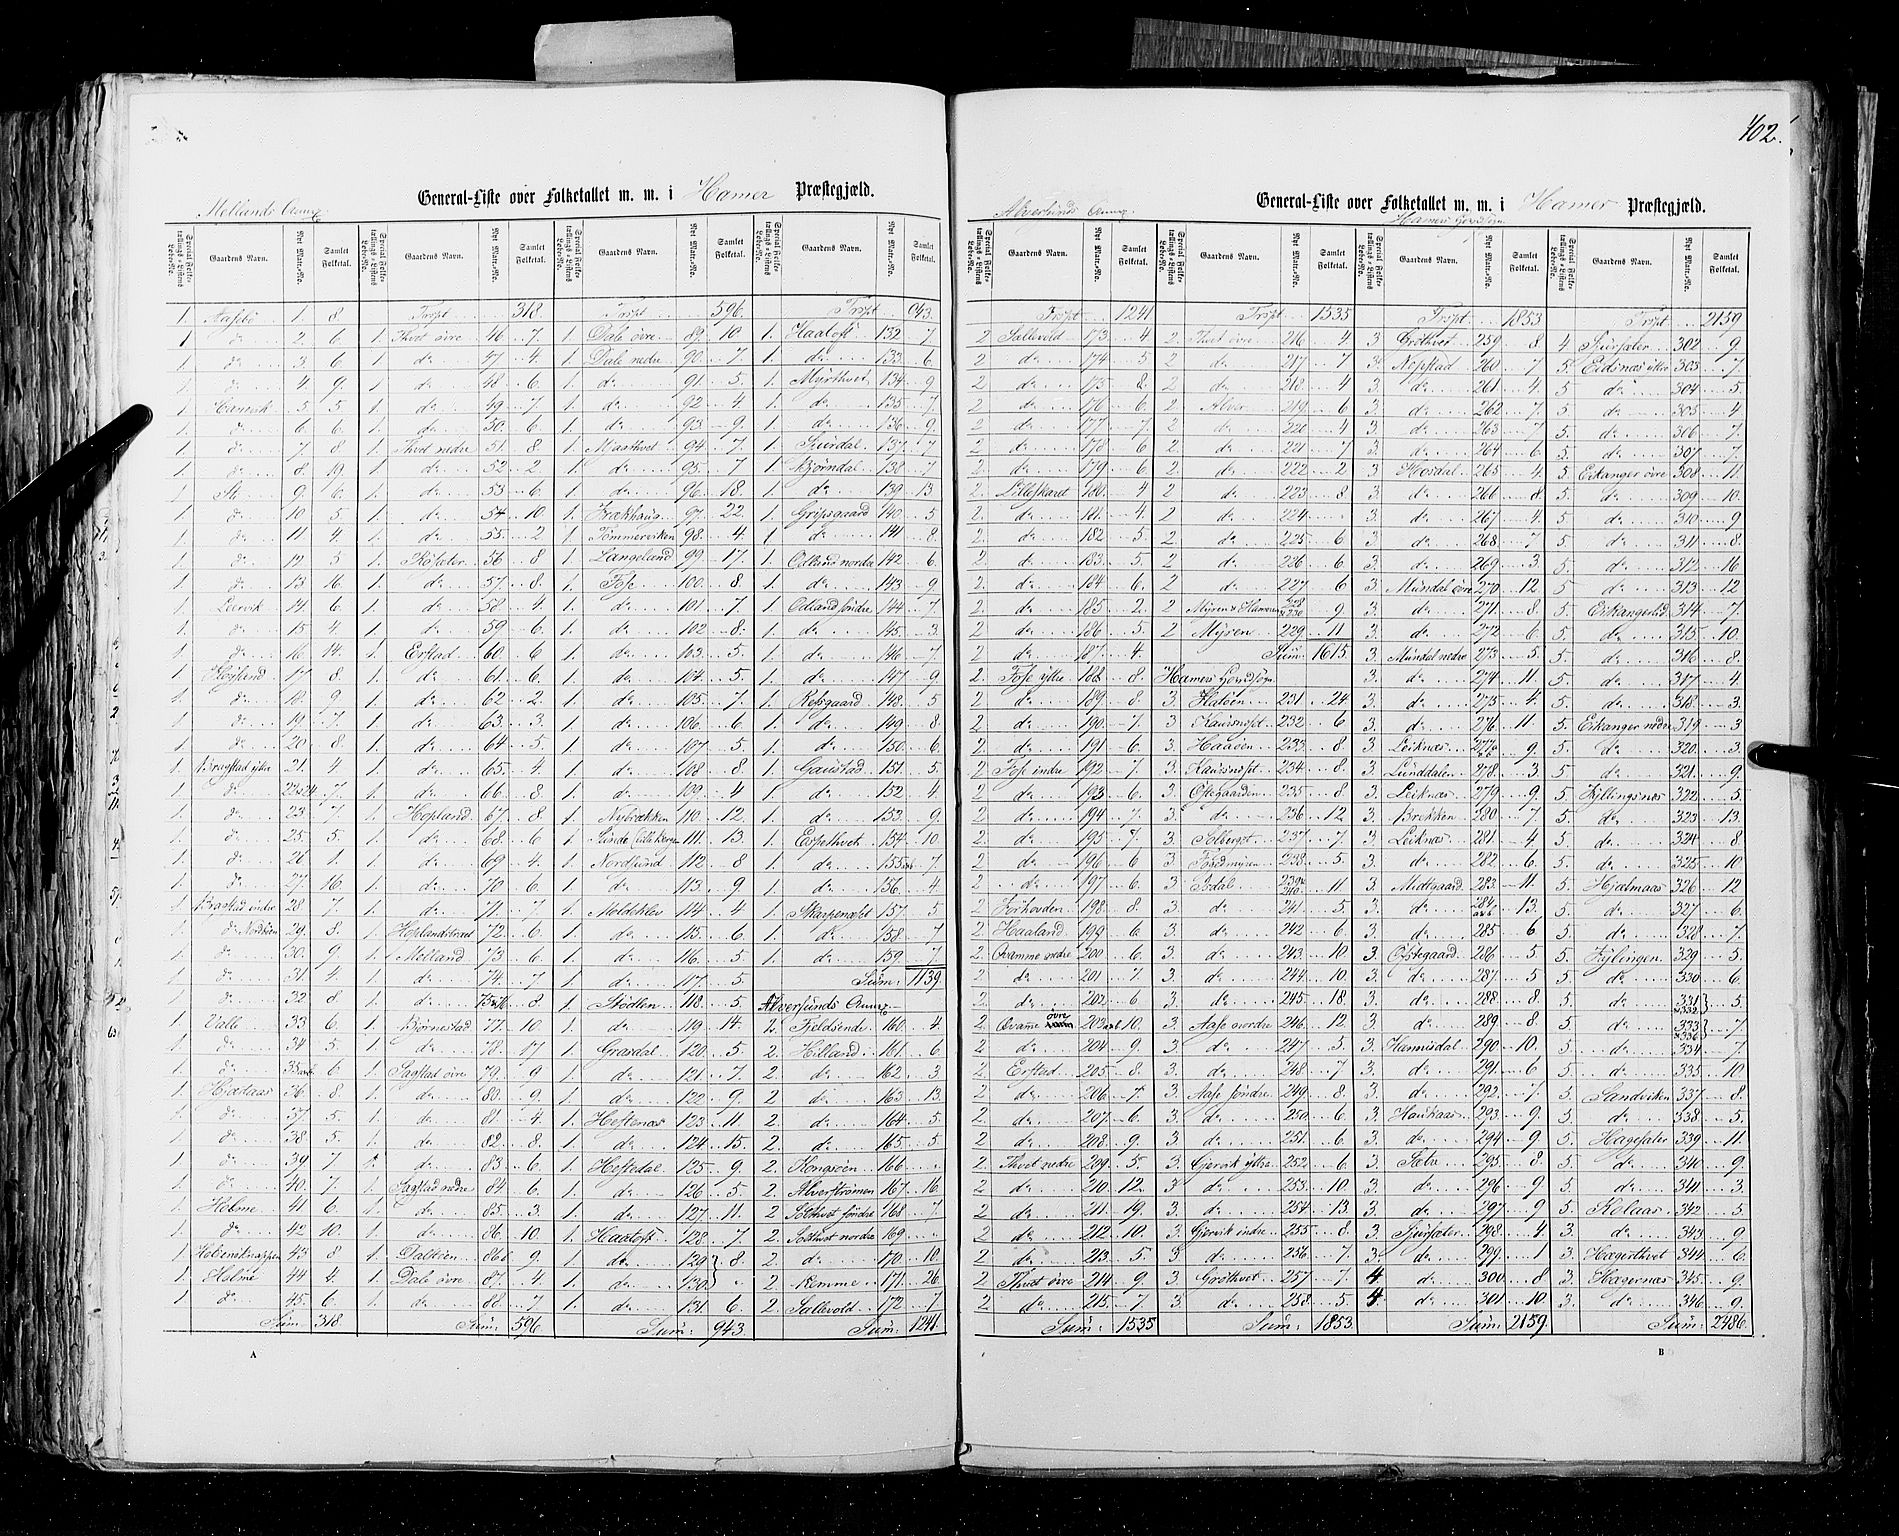 402.
Mellands Annex
General-Liste over Folketallet m. m. i Hamer Præstegjæld.
Special Folketællings-Listens Lobe-No. Gaardens Navn. Nyt Matr.-No. Samlet Folketal.
1. Aasebö 1. 8.
1 do 2. 6.
1. do 3. 6
1. do 4. 9.
1. Hanvik 5. 5
1. do 6. 6.
1. do 7. 8
1. do 8. 19.
1. do 9. 6.
1. do 10. 5
1. do 11. 4.
1. do 12. 5
1. do 13. 16.
1. Leervik 14. 6.
1. do 15. 4.
1. do 16. 14.
1. Höÿland 17. 8
1. do 18. 9
1. do 19. 7.
1. do 20. 8.
1. Bragstad ÿtre 21. 4.
1. do 22&24 7.
1. do 23. 7
1. do 25. 5.
1. do 26. 1.
1. do 27. 16.
1. Bragstad indre 28. 7.
1. do Nordboen 29. 8.
1. do 30. 9
1. do 31. 4
1. do 32. 8
1. Valle 33. 6.
1. do 34. 5.
1. do 35 a&b 6
1. Hjelaas 36. 8.
1. do 37. 5.
1. do 38. 5.
1. do 39. 7
1. do 40. 7.
1. Holme 41. 6.
1. do 42. 10.
1. Holmeknappen 43. 8
1. Holme 44. 4.
1. do 45. 6.
Sum 318.
Trspt 318
1. Thvet övre 46. 7.
1. do 47. 4.
1. do 48. 6.
1. do 49. 7
1. do 50. 6
1. Thvet nedre 51. 8.
1. do 52. 2
1. do 53. 6.
1. do 54. 10.
1. do 55. 2
1. Kösæter 56. 8
1. do 57. 8.
1. do 58. 4.
1. do 59. 6.
1. Erstad 60. 6
1. do 61. 6.
1. do 62. 2.
1. do 63. 3.
1. do 64. 5.
1. do 65. 4
1. do 66. 8
1. Hopland 67. 8
1. do 68. 6
1. do 69. 4.
1. do 70. 6.
1. do 71. 7
1. Hoplandsbræt 72. 6
1. Molland 73. 6
1. do 74. 7
1. do 75&76 8.
1. Björnestad 77. 10.
1. do 78. 17
1. Sagstad övre 79. 9
1. do 80. 9.
1. do 81. 4
1. do 82. 8.
1. do 83. 6.
1. Sagstad nedre 84. 6.
1. do 85. 3
1. do 86. 10.
1. Daltveen 86b 9.
1. Dale övre 87. 4
1. do 88. 7
Sum: 596
Trspt 596.
1. Dale övre 89. 10
1. Dale nedre 90. 7.
1. do 91. 5.
1. do 92. 4.
1. do 93. 9.
1. Maarthvet 94. 7
1. do 95. 7
1. do 96. 18.
1. Brækhaug 97. 22.
1. Tömmervikën 98. 4.
1. Langeland 99. 17.
1. Fose 100. 8.
1. do 101. 7.
1. do 102. 8.
1. do 103. 5.
1. do 104. 5.
1. do 105. 7.
1. do 106. 6.
1. do 107. 5.
1. do 108. 8.
1. do 109. 4
1. Nÿbrækken 110. 12.
1. Lunde Lillebergen 111. 13.
1. Nordlund 112. 8
1. do 113. 9
1. Moldeklev 114. 4
1. do 115. 6.
1. do 116. 5
1. do 117. 5
1. Stödlen 118. 5
1. do 119. 14.
1. Grasdal 120. 5.
1. do 121. 7.
1. do 122. 9.
1. Heftenæs 123. 11
1. do 124. 15.
1. Hestdal 125. 9.
1. do 126. 5
1. do 127. 11.
1. Haaloft 128. 7
1. do 129 8.
1. do 130
1. do 131 6.
Sum: 943.
Trspt 943.
1. Haaloft 132 7
1. do 133. 6.
1. Mÿrthvet 134. 9
1. do 135. 7.
1. do 136. 9
1. Suurdal 137. 7
1. Björndal 138. 7
1. do 139. 13
1. Gripsgaard 140. 5
1 do 141 8.
1. Odland nordre 142. 6.
1. do 143. 9
1. Odland söndre 144. 7
1. do 145. 3.
1. do 146. 7
1. do 147. 9
1. Refsgaard 148. 5
1. do 149. 8
1. do 150. 6.
1. Gaustad 151. 5.
1. do 152. 4.
1. do 153. 9
1. Espethvet 154. 10
1. do 155 7
1. do 156. 4.
1. Skarpenæset 157. 5
1. do 158. 7
1. do 159. 7
Sum: 1139.
Alversunds Annex
2. Fjeldsende 160. 4.
2. Hilland 161. 6
2. do 162. 3
2 do 163. 13.
2. do 164. 5.
2. do 165. 5
2. Kongsöen 166
2. Alverströmen 167. 16.
2 Solthvet söndre 168. 7
2. Solthvet nordre 169.
2. do 170. 10.
2 Remme 171. 26.
2 Sallevold 172. 7
Sum: 1241.
A
Alversunds Annex.
General-Liste over Folketallet m. m. i Hamer Præstegjæld.
Hamers Hovedsogn.
Trspt 1241
2 Sallevold 173. 4
2 do 174. 5
2 do 175. 8.
2 do 176. 6.
2 do 177. 7
2 do 178. 6
2 do 179. 6
2. Lilleskaret 180. 4
2. do 181. 4.
2. do 182. 5
2. do 183. 5.
2. do 184. 6.
2. do 185. 2.
2. do 186. 5.
2. do 187. 4
2. Fose ÿttre 188. 8.
2 do 189. 8
2 do 190. 7
2 do 191. 6.
2 Fose indre 192. 7.
2 do 193. 6
2 do 194. 7
2 do 195. 7
2 do 196. 6
2 do 197. 6.
2 Jorhovden 198. 8.
2 Haaland 199. 6.
2. Qvamme nedre 200. 6
2. do 201. 7
2 do 202. 6
2. Qvame övre 203 a&b 10.
2 do 204. 9
2 Erstad 205. 8.
2 do 206. 7.
2. do 207. 6
2 do 208. 9
2 Thvet nedre 209. 5.
2. do 210. 12.
2. do 211. 19.
2 do 212. 10.
2 do 213. 5
2 Thvet övre 214. 9
2 do 215. 7.
Sum: 1535
Trspt 1535
2. Thvet övre 216. 4
2. do 217. 7
2 do 218. 4
2 Alver 219. 6
2. do 220. 4
2. do 221. 7
2. do 222. 2
2 do 223. 8
2. do 224
2. do 225. 6
2 do 226. 6
2 do 227. 6
2 Mÿren & Hameren 228 & 230 9
2 Mÿren 229. 11
Sum: 1615.
Hamers Hovedsogn
3. Hatöen 231. 24.
3. Kausnoset 232. 6
3. Haaöen 233. 8
3. Kausnoset 234. 8
3. Ostegaarden 235. 8
3. do 236. 12
3. Solberget 237. 7
3. Fredmÿren 238. 5.
3. Isdal 239 & 240. 11
3. do 241. 5.
3. do 242. 6
3. do 243. 10
3. do 244. 10
3. do 245. 18
3. Aase nordre 246. 12.
3. do 247. 5
3. do 248. 7
3. Aase söndre 249. 8.
3. do 250. 6
3. do 251. 6
3. Gjervik ÿttre 252. 6.
3 do 253. 10
3. do 254. 13.
3. Gjervik indre 255. 8.
3 do 256. 7.
3 Gröthvet 257. 7
3. do 258. 5.
Sum: 1853.
Trspt 1853
3 Gröthvet 259. 8
3. Nepstad 260. 7
3 do 261. 4
3. do 262. 7.
3. do 263. 7
3. do 264. 6
3 Hosdal 265. 4.
3. do 266. 8
3. do 267. 4.
3. do 268. 7
3. do 269. 3.
3. Mundal övre 270. 12.
3. do 271. 8.
3. do 272. 6
3. Mundal nedre 273. 5.
3. do 274. 11
3. do 275. 4
3 do 276. 11
3. Leiknæs 277 9.
3. Lunddalen 278. 3.
3. Leiknæs 279. 9
3. Brekken 280. 7
3. Leiknæs 281. 4
3. do 282. 6.
3. Midtgaard 283. 11
3. do 284 a&b 13.
3. do 285 6
3. Ostegaard 286 5
3. do 287. 5
3. do 288. 8
3. do 289. 8
3. Hannisdal 290. 10.
3. do 291. 6
3. do 292. 7
3. Haukaas 293. 9.
3. do 294. 9
3. Sætre 295. 8.
3. do 296. 9
3. do 297. 9
3. Sjursæter 298. 4
3 do 299. 1
4 do 300. 8
4. do 301. 10.
Sum: 2159.
Trspt 2159
4 Sursæter 302. 9.
5. Eidsnæs ittre 303. 7.
5. do 304. 5.
5. do 305. 4
5. do 306. 7.
5. do 307. 7
5. Eikanger övre 308. 11
5. do 309. 10.
5 do 310. 9
5 do 311. 8
5. do 312. 16
5 do 313. 12
5. Eikangerlid 314. 7.
5. do 315. 10.
5. do 316. 8.
5. do 317. 4
5. do 318. 3.
5. Eikanger nedre 319. 3
5. do 320. 3.
5 do 321. 9.
5. Kyllingsnæs 322. 5
5. do 323. 13.
5. do 324. 8
5. do 325. 10
5. Hjelmaas 326. 12
5. do 327. 6.
5. do 328. 7.
5. Kyllingen 329. 5
5. do 330. 6
5. do 331 & 332 5.
5. do 333 & 336 7.
5. do 334. 7.
5 do 335. 10
5. Sandviken 337. 8.
5. do 338. 5.
5. Hagesæter 339. 11.
5. do 340. 9
5 do 341. 3.
5 Kolaas 342. 5
3. do 343. 9
3. Hagerthvet 344. 6.
3. Hagernæs 345. 9.
3. do 346. 9.
Sum: 2486.
B